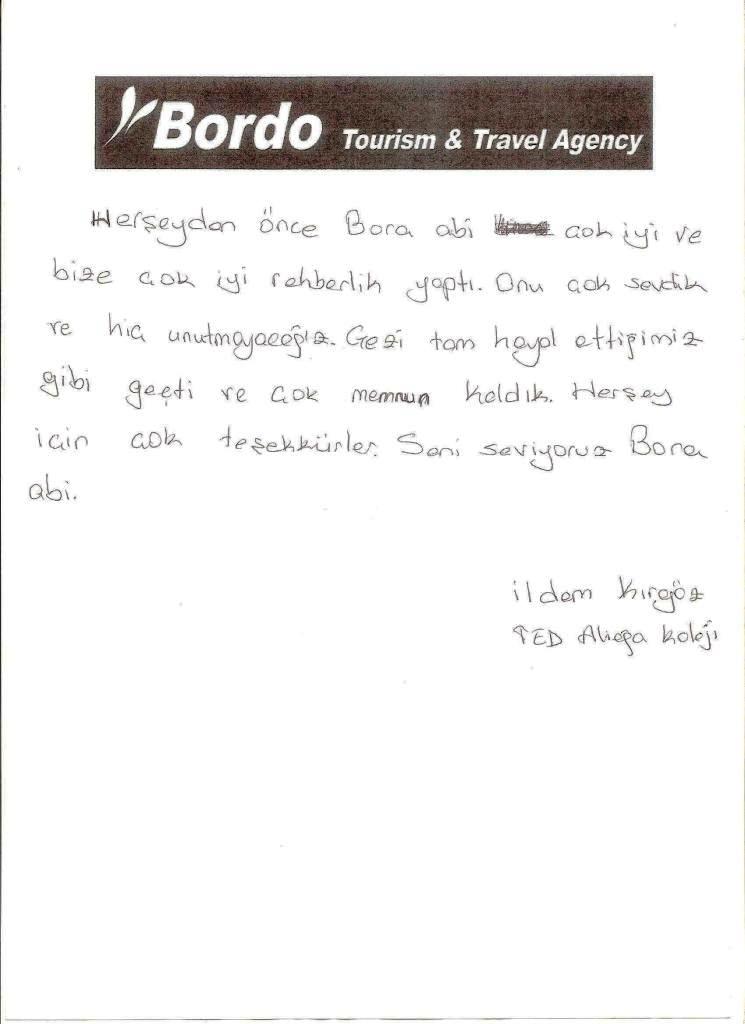 Bordo Tourism & Travel Agency
Herşeyden önce Bora abi çok iyi ve
bize çok iyi rehberlik yaptı. Onu çok sevdik
ve hiç unutmayacağız. Gezi tam hayal ettiğimiz
gibi geçti ve çok memnun kaldık. Herşey
için çok teşekkürler. Seni seviyoruz Bora
abi.
İldem Kırgöz
TED Aliağa Koleji